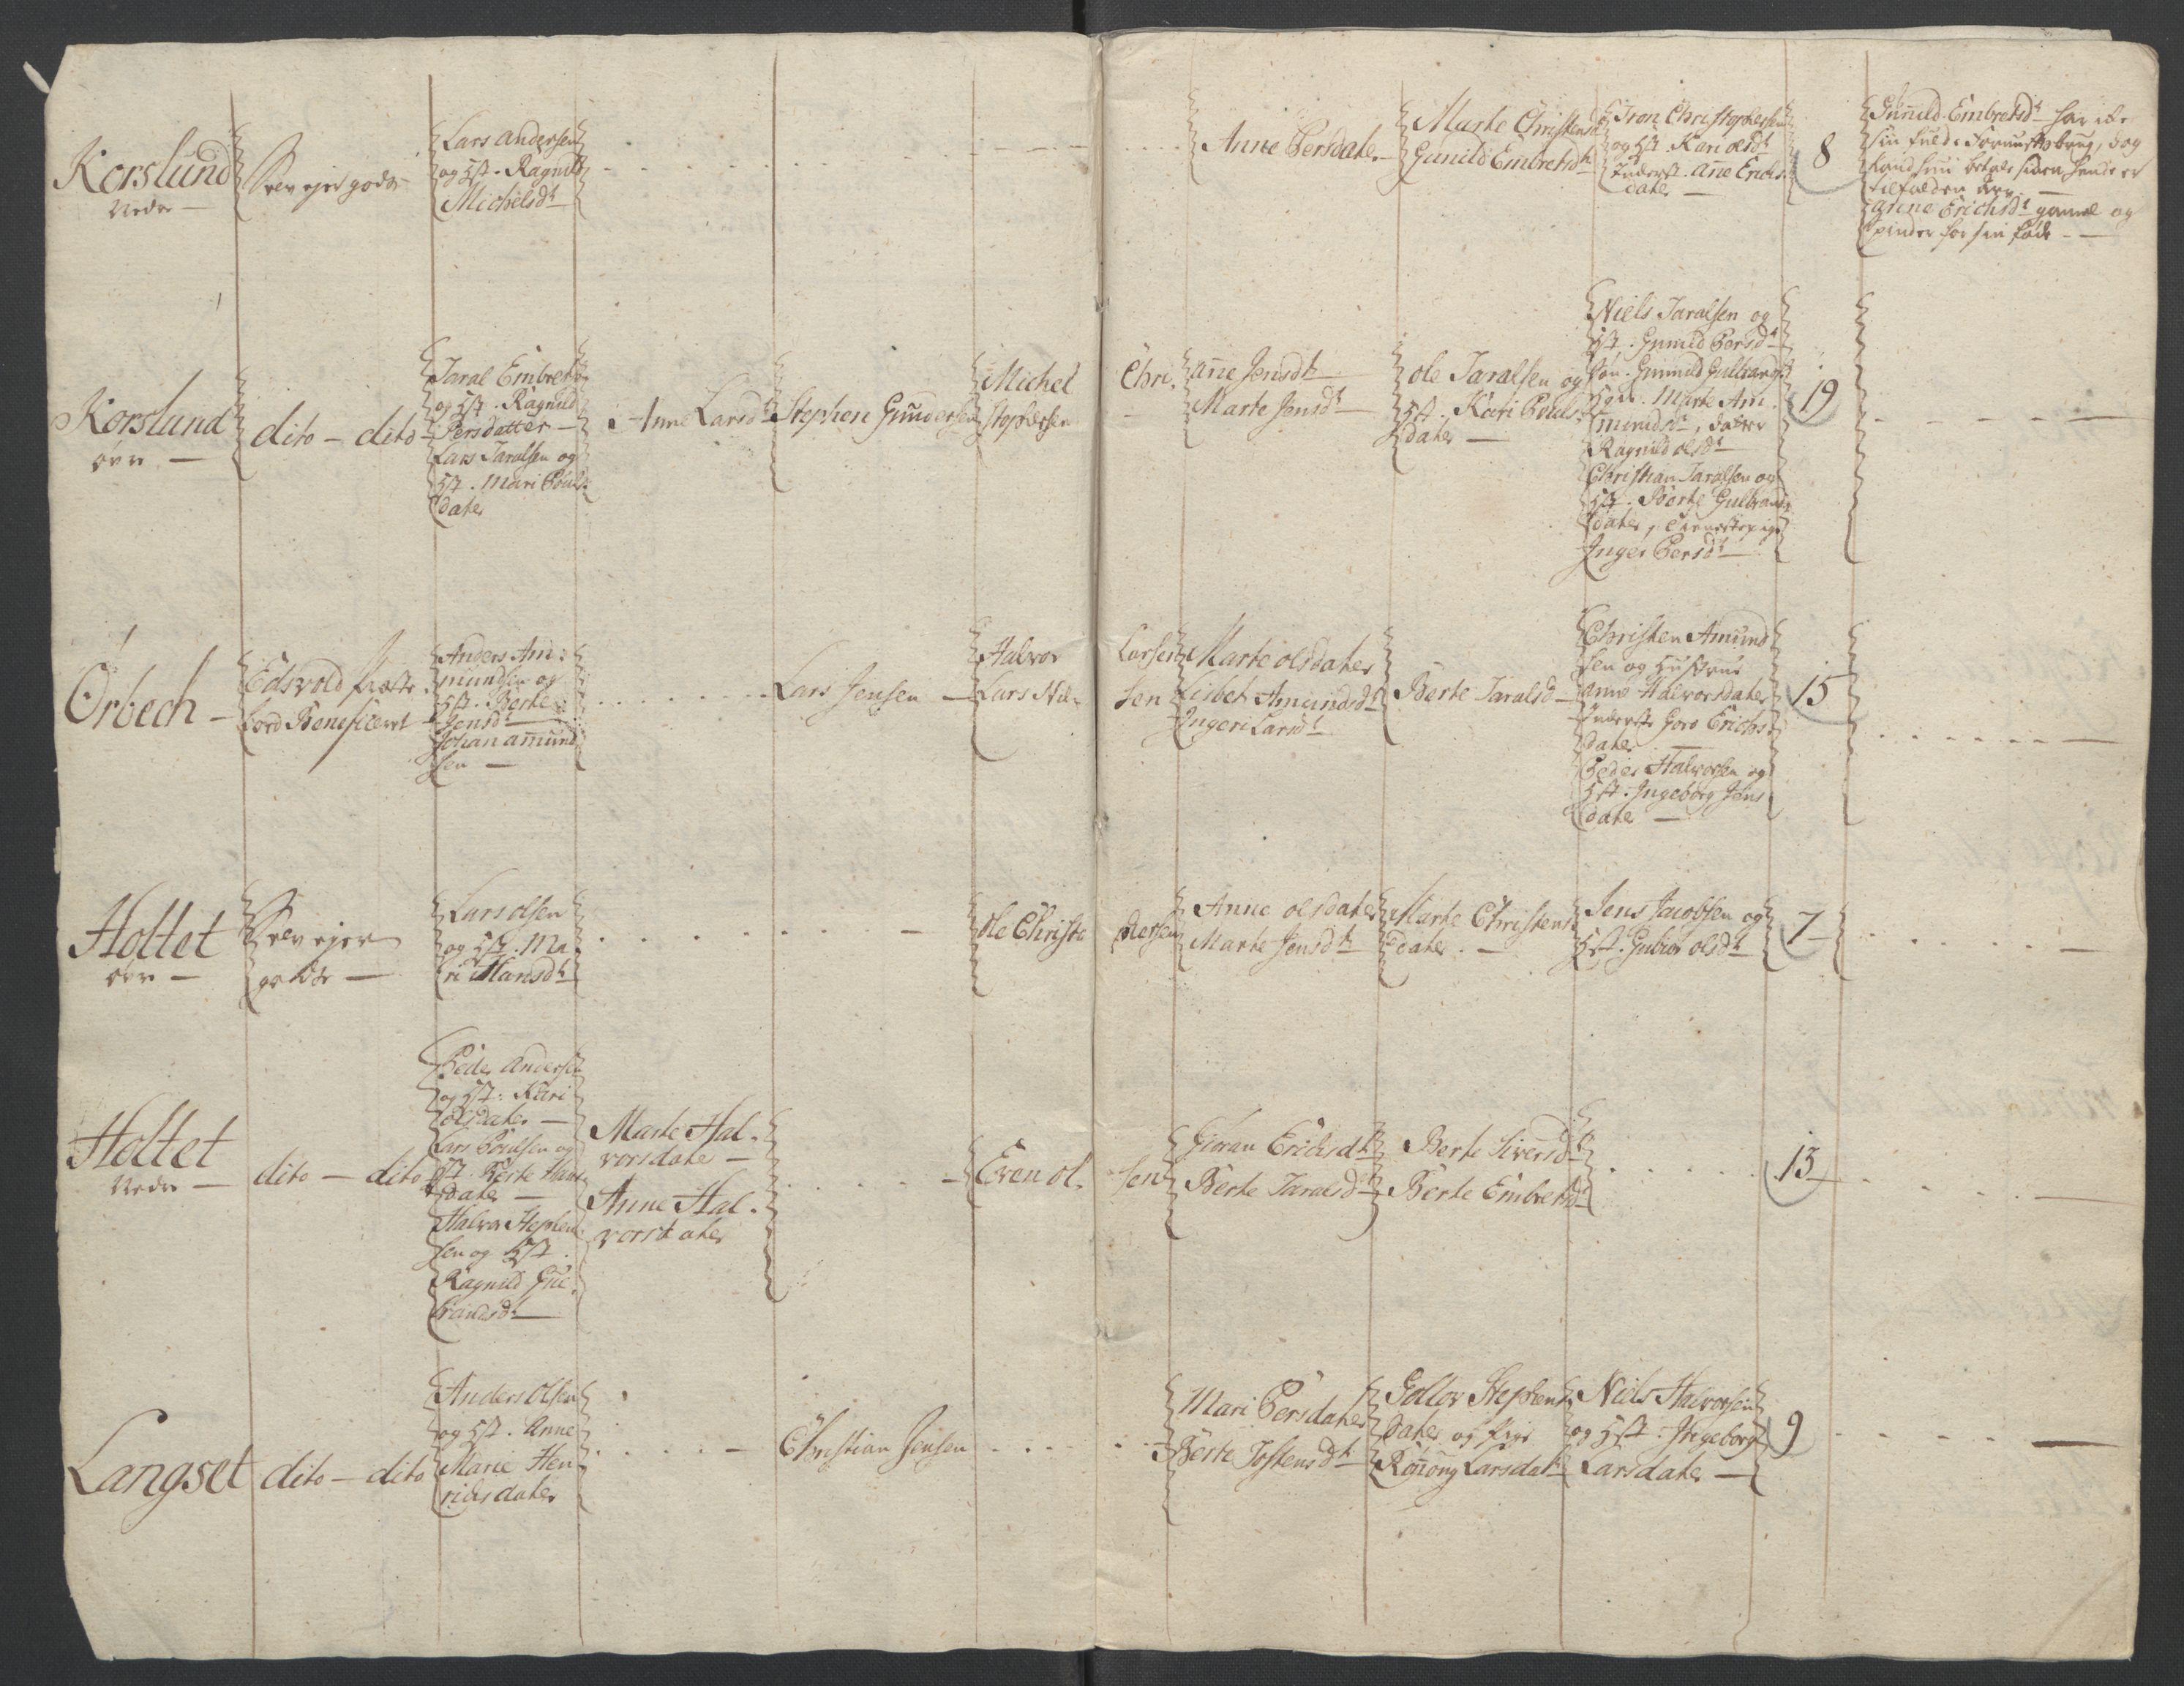 Korslund
Nedre —
Selv ejer gods
Lars Andersen
og Hst. Ragnild
Michelsdt
Anne Persdater
Marte Christensd
Gunild Embretsdt
Iron Christophersen
og Hst. Kari olsdt
Inderst. Ane Erichs
dater —
8
Gunild Embretsdt har icke
sin fulde Fornufts brug, dog
kand hun betale siden hende er
tilfalden Arv. —
Arene Erichsdt gamel og
spinder for sin føde —
Korslund
øvre —
dito — dito
Taral Embret
og Hst. Ragnild
Persdatter —
Lars Taralsen og
Hst. Mari Pouls
dater
Anne Larsdt
Stephen Gundersen
Michel Chri
stophersen
Ane Jensdt
Marte Jensdt
ole Taralsen og
Hst. Kari Pouls
dater —
Niels Taralsen og
Hst. Gunild Persdt
søn Gunuld Gulbrands
Marte Am
mundsdt, dater
Ragnild olsdt
Christian Taralsen og
Hst. Berte Gulbrands
dater, tienestepige
Inger Persdt
19
Örbech —
Edsvold Præste
bord Beneficeret
Anders Am
mundsen og
Hst. Berte
Jensdt
Johan Amund
sen —
Lars Jensen —
Halvor Larsen
Lars Niel sen
Marte olsdater
Lisbet Amundsdt
Ingeri Larsdt
Berte Taralsd
Christen Amund
sen og Hustrue
Anne Halvorsdater
Inderste Goro Erichs
dater —
Peder Halvorsen og
Hst. Ingeborg Jens
dater —
15
Holtet
øvre —
Selv ejer
gods —
Lars olsen
og Hst. Ma
ri Hansdt
ole Christo phersen
Anne olsdater
Marte Jensdt
Marte Christens
dater —
Jens Jacobsen og
Hst. Gubior olsdt
7
Holtet
Nedre —
dito — dito
Peder Andersen
og Hst. Kari
olsdater —
Lars Poulsen og
Hst. Berte Hans
dater —
Halvor Stephen
sen og Hst.
Ragnild Gul
brandsdt
Marte Hal
vorsdater —
Anne Hal
vorsdater
Even ol sen
Gioran Erichsdt
Berte Taralsdt
Berte Siversdt
Berte Embretsdt
13
Langset
dito — dito
Anders Olsen
og Hst. Anne
Marie Hen
richsdater
Christian Jensen
Mari Persdater
Berte Jostensdt
Gollov Stephens
dater og Pige
Rønnoug Larsdat
Niels Halvorsen
og Hst. Ingeborg
Larsdater —
9